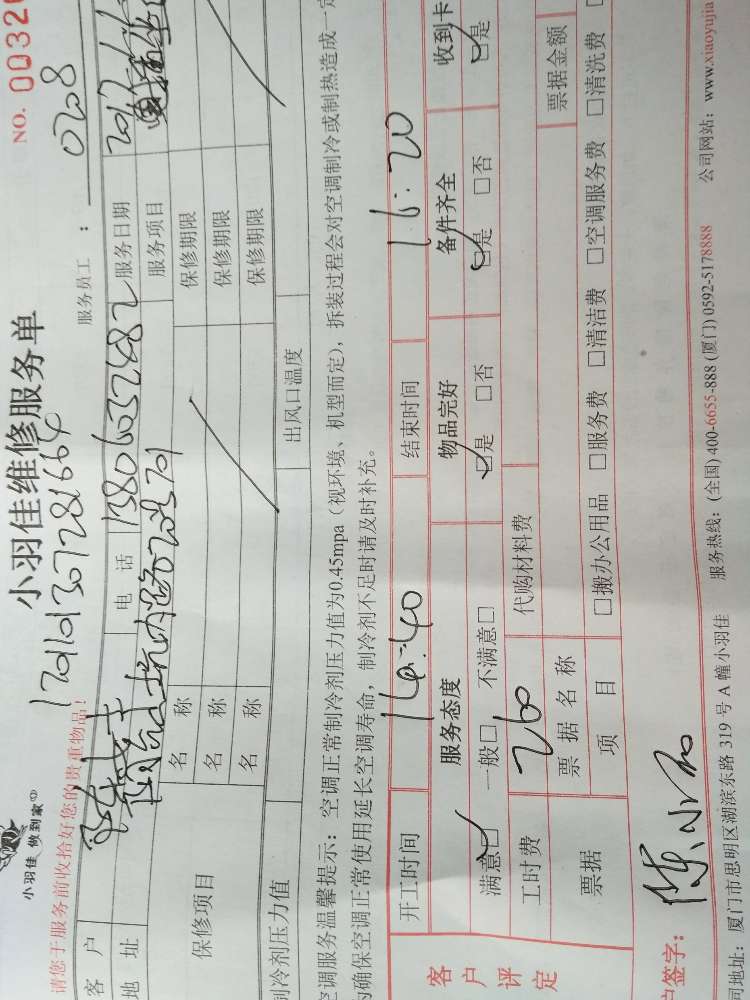 小羽佳 做到家
小羽佳维修服务单
NO. 0032
请您于服务前收拾好您的贵重物品！
服务员工： 0208
客户 电话 13806037482 服务日期
地址 服务项目
保修项目 名称 保修期限
名称 保修期限
名称 保修期限
制冷剂压力值 出风口温度
空调服务温馨提示：空调正常制冷剂压力值为0.45mpa（视环境、机型而定），拆装过程会对空调制冷或制热造成一定
为确保空调正常使用延长空调寿命，制冷剂不足时请及时补充。
客户评定 开工时间 结束时间 16:20
服务态度 物品完好 备件齐全 收到卡
满意□ 一般□ 不满意□ □是 □否 □是 □否 □是
工时费 260 代购材料费
票据 票据名称 票据金额
项目 □搬办公用品 □服务费 □清洁费 □空调服务费 □清洗费
户签字：
司地址：厦门市思明区湖滨东路 319 号 A 幢小羽佳 服务热线：(全国) 400-6655-888 (厦门) 0592-5178888 公司网站：www.xiaoyujia